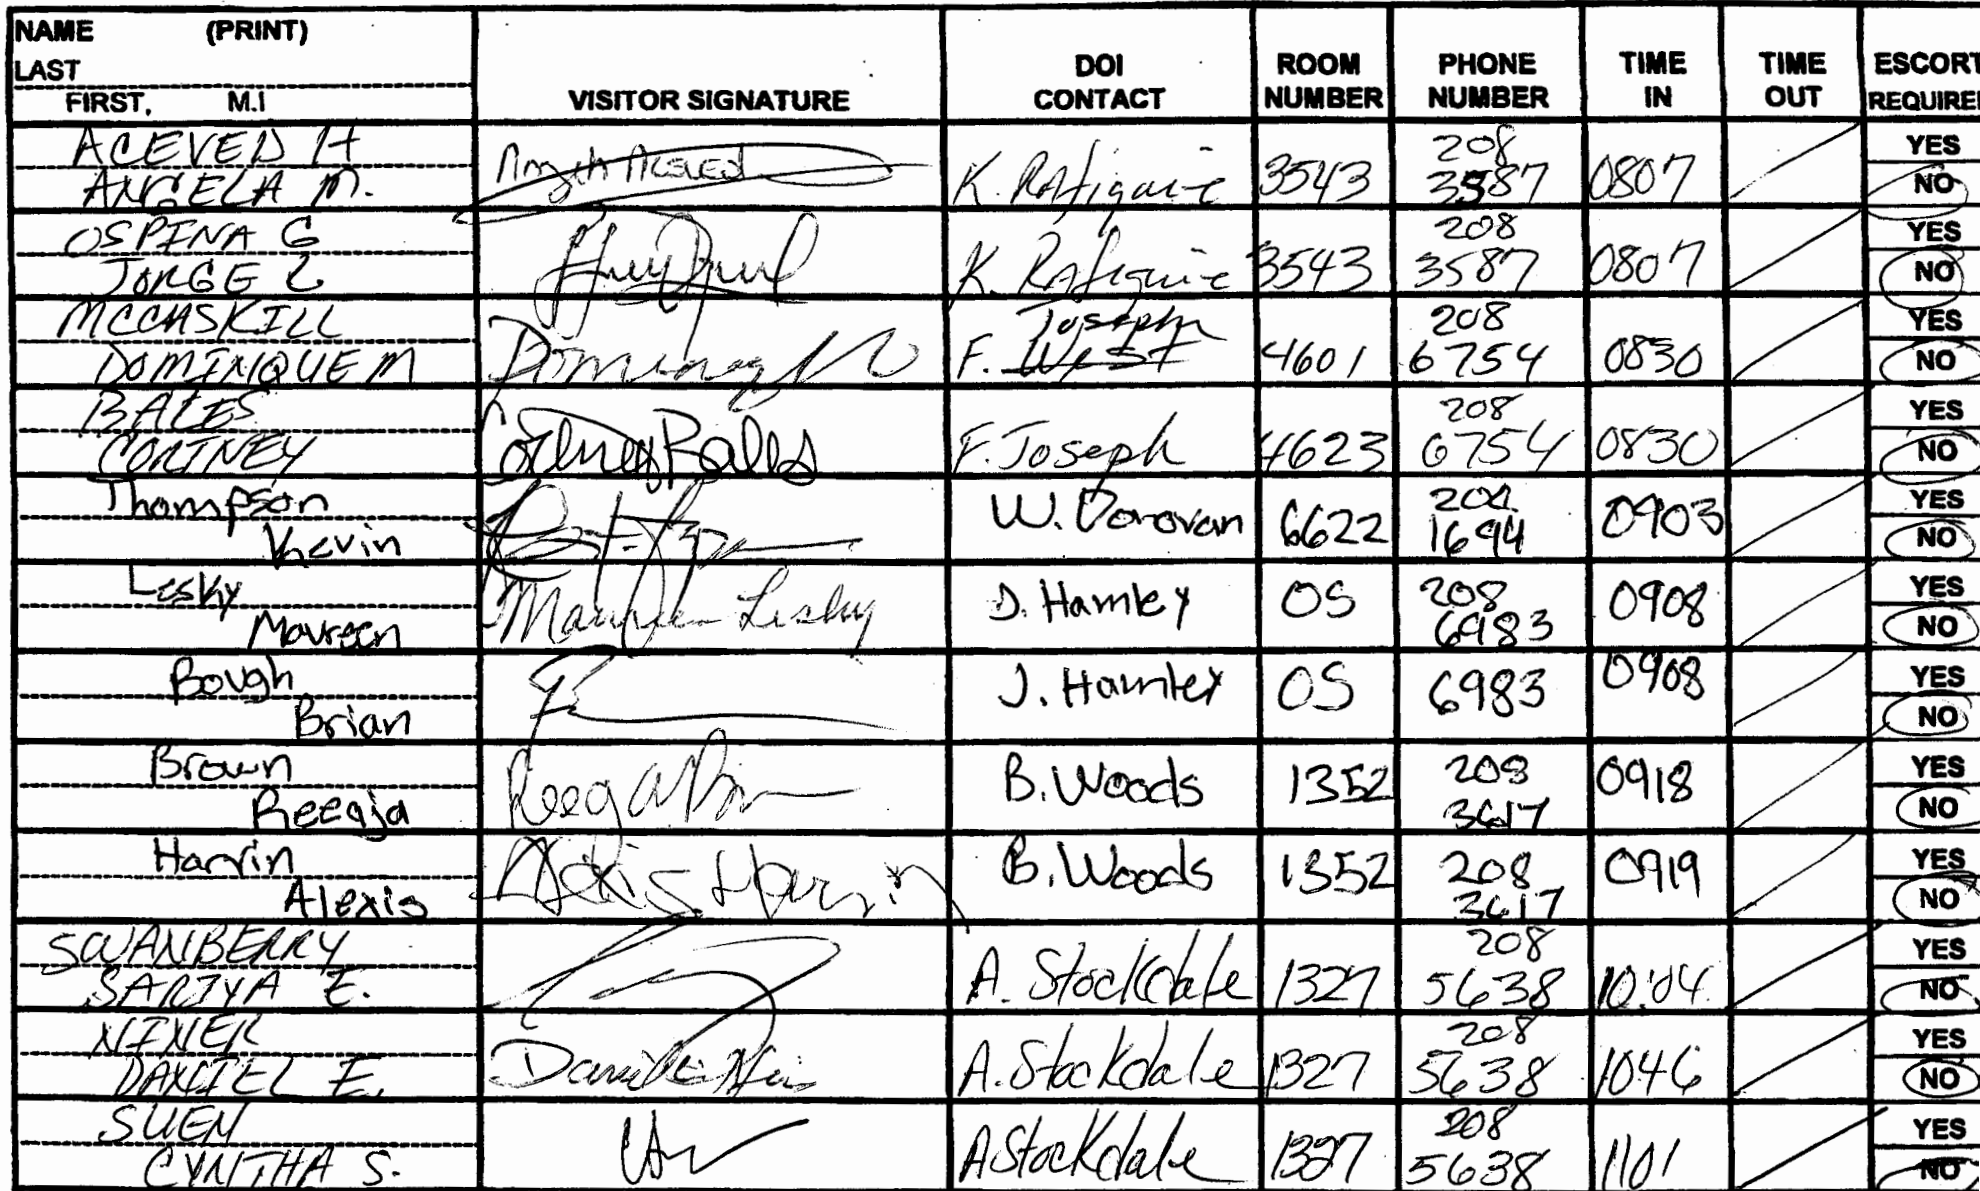 NAME (PRINT)
LAST
FIRST, M.I
VISITOR SIGNATURE
DOI
CONTACT
ROOM
NUMBER
PHONE
NUMBER
TIME
IN
TIME
OUT
ESCORT
REQUIRE
ACEVED H
ANGELA M.
K. Rafiquie 3543 208 3587 0807 YES
NO
OSPINA G
JORGE L
K. Rafiquie 3543 208 3587 0807 YES
NO
MCCASKILL
DOMINIQUE M
F. West Joseph 4601 208 6754 0830 YES
NO
BALES
CORTNEY
Cortney Bales F. Joseph 4623 208 6754 0830 YES
NO
Thompson
Kevin
W. Donovan 6622 208 1694 0903 YES
NO
Lesky
Maureen
Maureen Lesky D. Hamley OS 208 6983 0908 YES
NO
Bough
Brian
J. Hamley OS 6983 0908 YES
NO
Brown
Reegja
B. Woods 1352 208 3617 0918 YES
NO
Harvin
Alexis
Alexis Harvin B. Woods 1352 208 3617 0919 YES
NO
SWANBERRY
SARIYA E.
A. Stockdale 1327 208 5638 10:04 YES
NO
NINER
DANIEL E.
A. Stockdale 1327 208 5638 1046 YES
NO
SUEN
CYNTHA S.
A Stockdale 1327 208 5638 1101 YES
NO